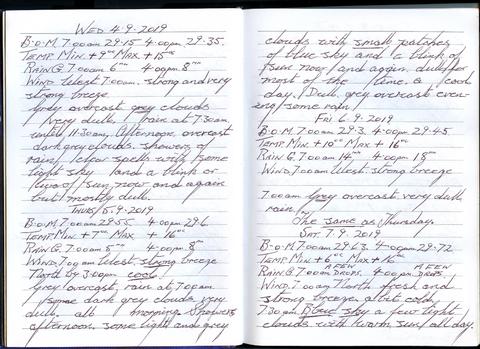 WED 4-9-2019
B-O-M. 7.00am 29-15 4.00pm 29-35.
TEMP. MIN + 9°C MAX + 15°C
RAIN G. 7.00am 6mm 4.00pm 8mm
WIND, West 7.00am. strong and very
strong breeze
Grey overcast grey clouds
very dull. rain at 7.30am,
until 11-30am, Afternoon. overcast
dark grey clouds. showers of
rain, clear spells with some
light sky and a blink or
two of sun now and again
but mostly dull.
THURS 5-9-2019
B-O-M. 7.00am 29-55 4.00pm 29-6
TEMP. MIN. + 7°C MAX + 16°C
RAIN G. 7.00am 8mm 4.00pm 8mm
WIND, 7.00am West. strong breeze
North by 3.00pm cool!
Grey overcast, rain at 7.00am
some dark grey clouds very
dull. all morning. Showers
afternoon. some light and grey
clouds with small patches
of blue sky and a blink of
sun now and again. dull for
most of the time. A cool
day! Dull, grey overcast even-
ing, some rain
FRI 6-9-2019
B-O-M. 7.00am 29-3. 4.00pm 29-45
TEMP. MIN + 10°C MAX + 16°C
RAIN G. 7.00am 14mm 4.00pm 18mm
WIND, 7.00am West. strong breeze
7.00am Grey overcast very dull,
rain,
The same as Thursday.
SAT. 7-9-2019
B-O-M. 7.00am 29-63. 4.00pm 29-72
TEMP. MIN + 6°C MAX + 16°C
RAIN G. 7.00am A FEW DROPS. 4.00pm A FEW DROPS.
WIND, 7.00am North fresh and
strong breeze. albit cold,
7.30am, Blue sky a few light
clouds with warm sun, all day.